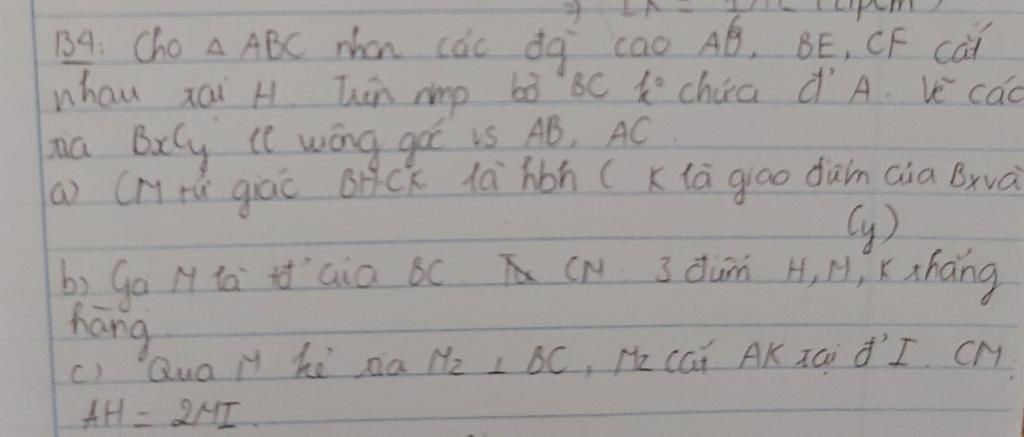 B4: Cho △ ABC nhọn các đg cao AD, BE, CF cắt
nhau tại H. Trên nmp bờ BC k° chứa đ' A. Vẽ các
tia Bx Cy ⊥ vuông góc vs AB, AC.
a) CM tứ giác BHCK là hbh ( K là giao điểm của Bx và
Cy)
b) Gọi M là tđ' của BC. CM 3 điểm H, M, K thẳng
hàng.
c) Qua M kẻ tia Mz ⊥ BC, Mz cắt AK tại đ' I. CM
AH = 2MI.